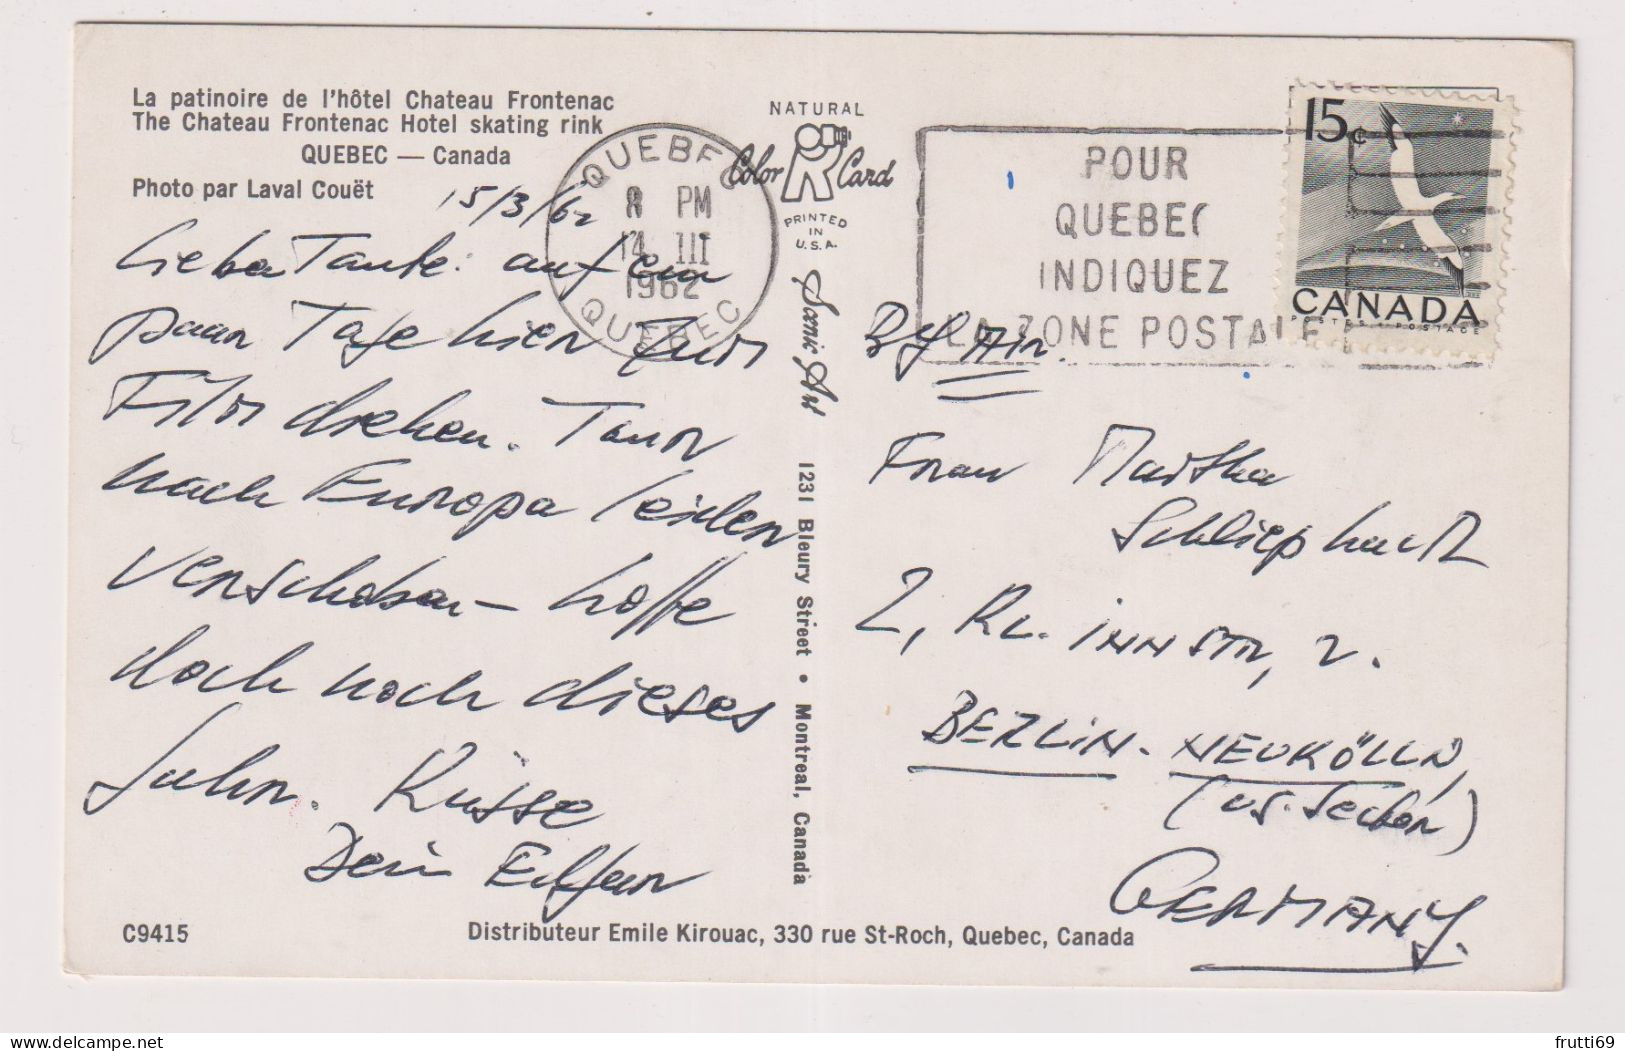 La patinoire de l'hôtel Chateau Frontenac
The Chateau Frontenac Hotel skating rink
QUEBEC — Canada
Photo par Laval Couët
15/3/62
Liebe Tante: auf ein
paar Tage hier zum
Film drehen. Tour
nach Europa leider
verschoben – hoffe
doch noch dieses
Jahr. Küsse
Dein
C9415
QUEBEC
8 PM
14 III
1962
QUEBEC
NATURAL
Color Card
PRINTED
IN
U.S.A.
Scenic Art
1231 Bleury Street • Montreal, Canada
POUR
QUEBEC
INDIQUEZ
LA ZONE POSTALE
15¢
CANADA
POSTES POSTAGE
By Air.
Frau Martha
Schliephack
2, Kl. INNSTR, 2.
BERLIN-NEUKÖLLN,
(US. Sector)
GERMANY.
Distributeur Emile Kirouac, 330 rue St-Roch, Quebec, Canada
delcampe.net
frutti69